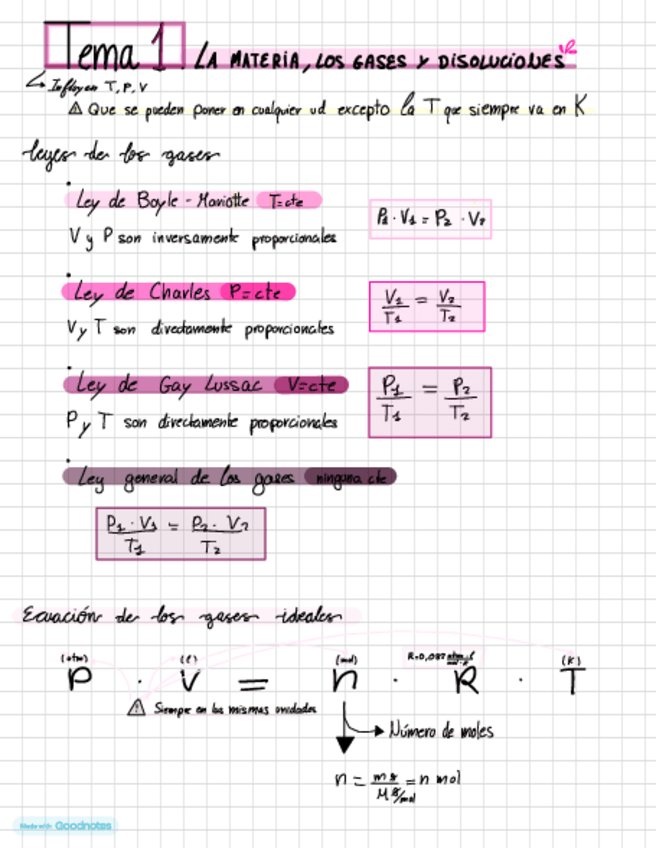 Tema 1. LA MATERIA, LOS GASES Y DISOLUCIONES
Influyen T, P, V
⚠ Que se pueden poner en cualquier ud excepto la T que siempre va en K
leyes de los gases
Ley de Boyle - Mariotte T=cte
P1 · V1 = P2 · V2
V y P son inversamente proporcionales
Ley de Charles P=cte
V1/T1 = V2/T2
V y T son directamente proporcionales
Ley de Gay Lussac V=cte
P1/T1 = P2/T2
P y T son directamente proporcionales
Ley general de los gases ninguna cte
P1 · V1/T1 = P2 · V2/T2
Ecuación de los gases ideales
(atm) (l) (mol) R=0,082 atm·l/mol·K (K)
P · V = n · R · T
⚠ Siempre en las mismas unidades
Número de moles
n = m g/M g/mol = n mol
Made with Goodnotes